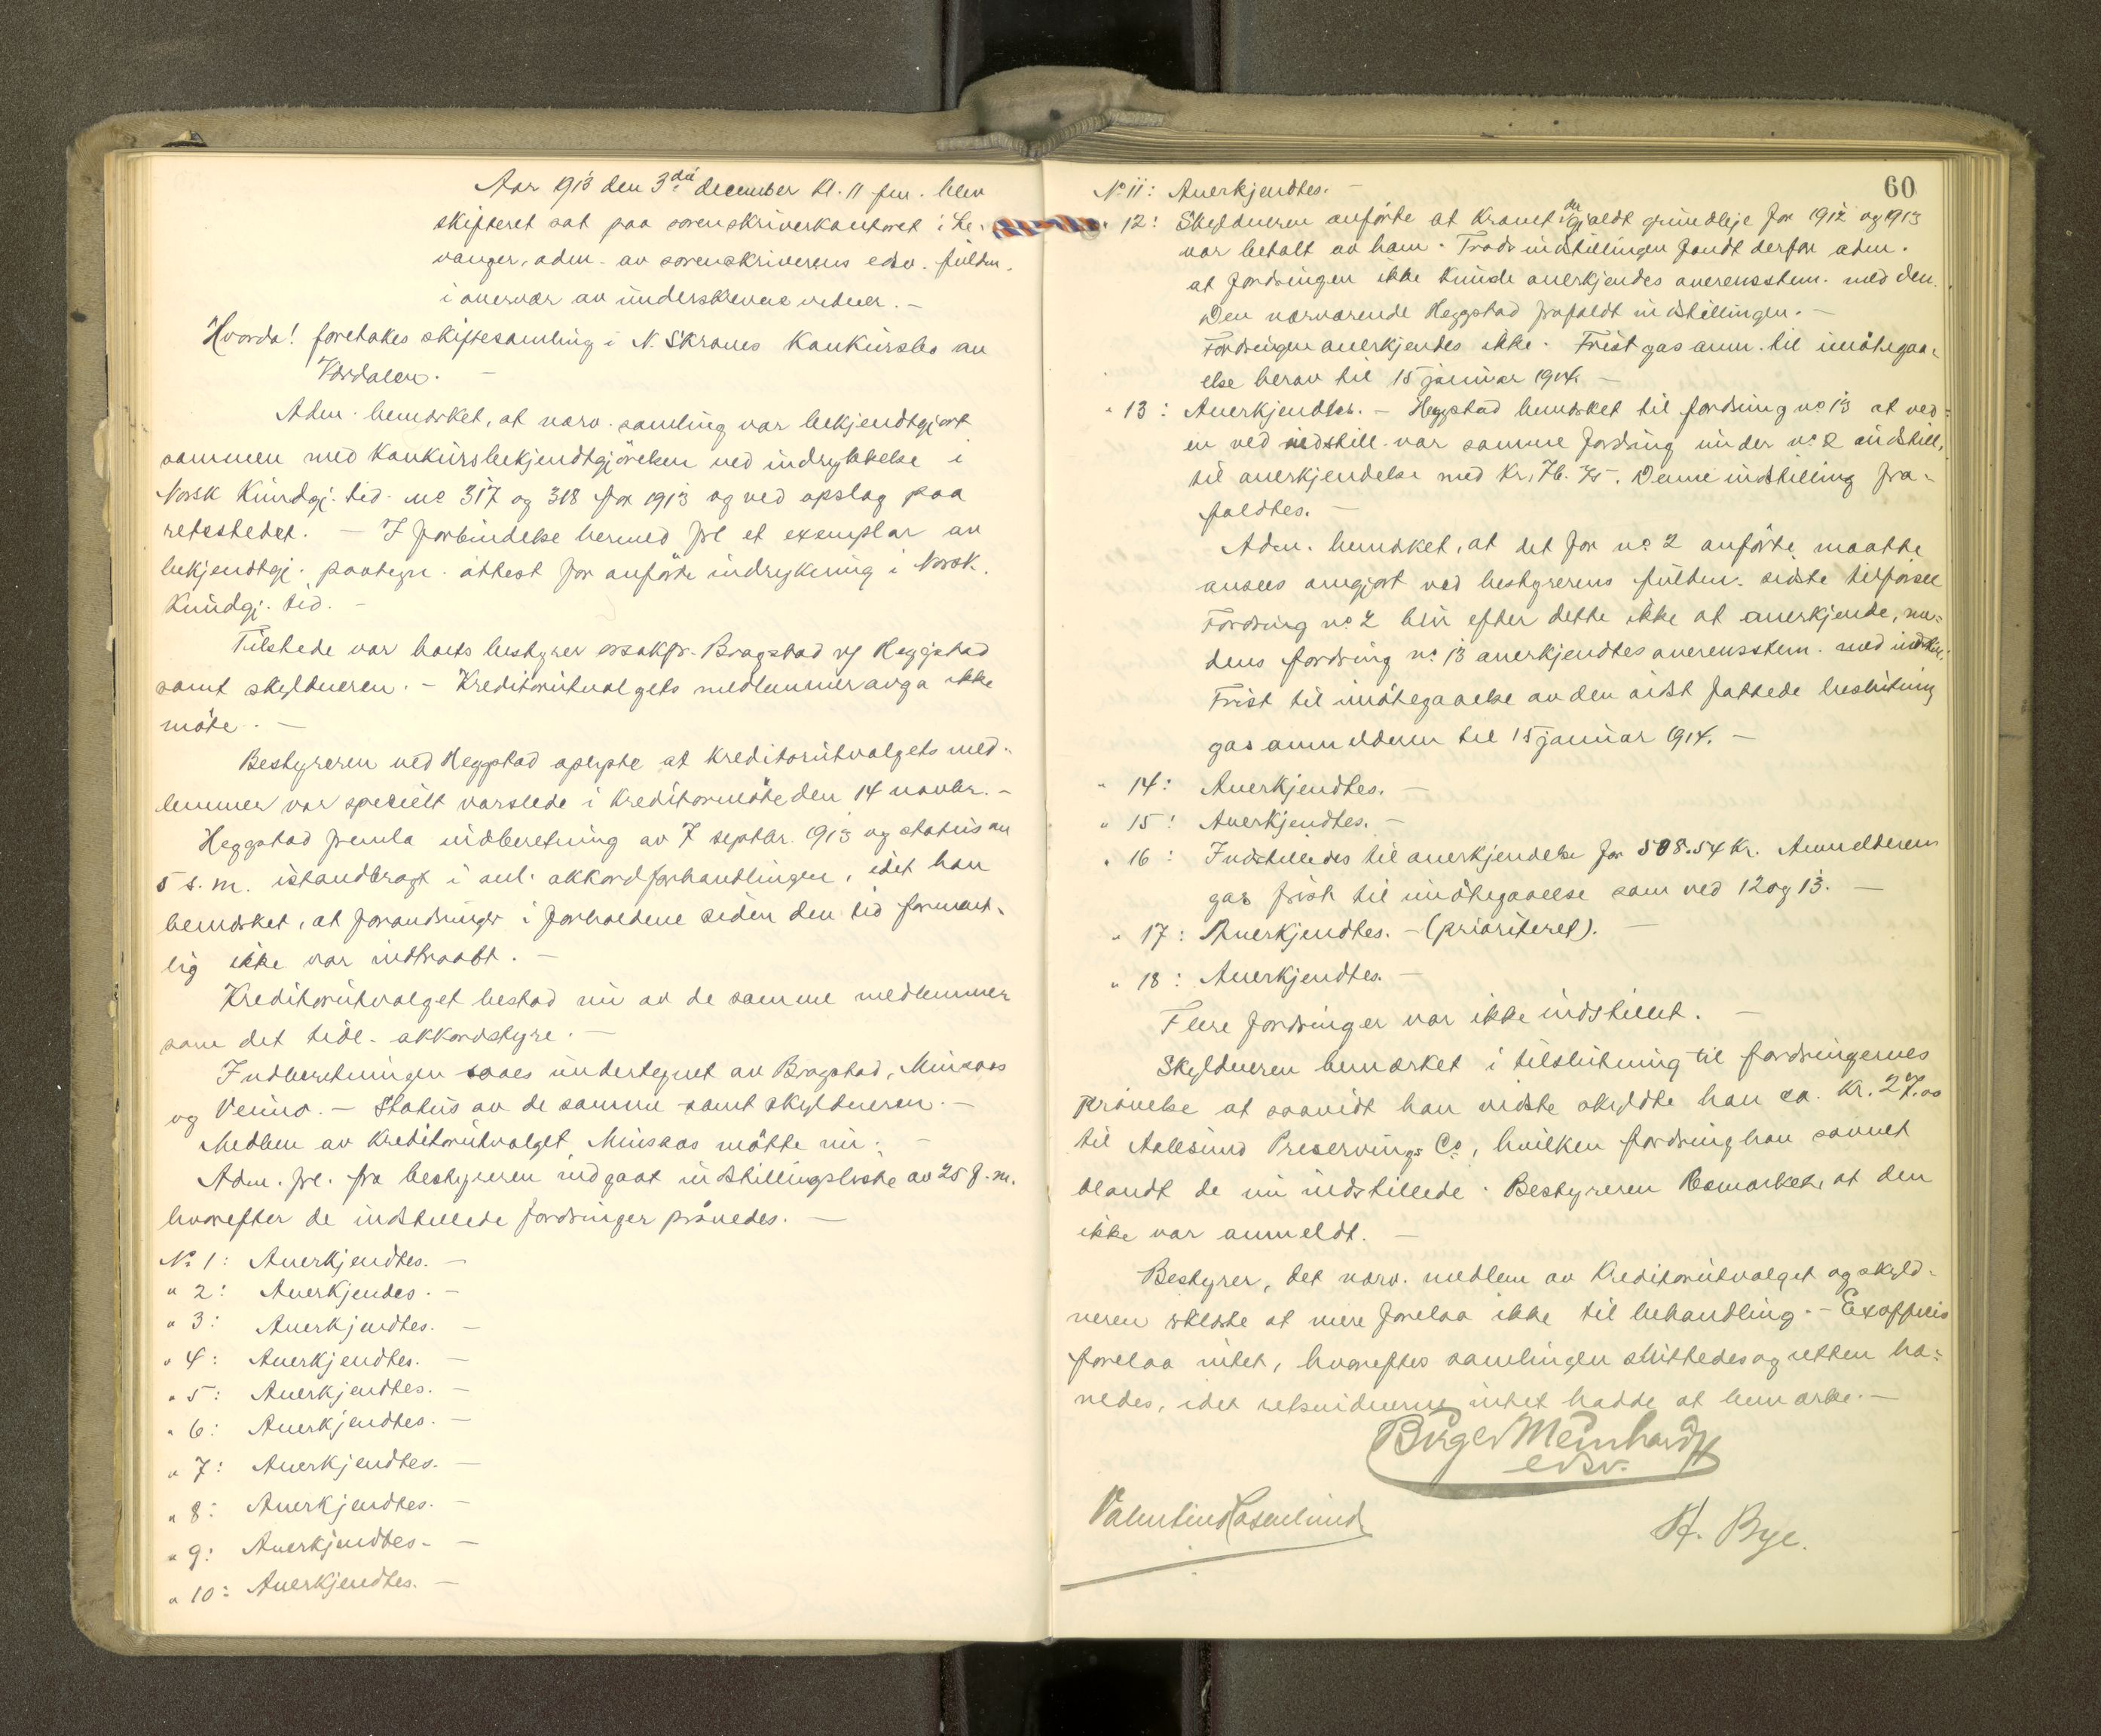 Aar 1913 den 3die december kl. 11 fm. blev
skifteret sat paa sorenskriverkontoret i Le-
vanger, adm. av sorenskriverens edsv. fuldm.
i overvær av underskrevne vidner. —
Hvorda! foretokes skiftesamling i N. Skraves konkursbo av
Værdalen. —
Adm. bemærket, at nærv. samling var bekjendtgjort
sammen med konkursbekjendtgjørelsen ved indrykkelse i
Norsk Kundgj. tid. No 317 og 318 for 1913 og ved opslag paa
retsstedet. — I forbindelse hermed frl. et exemplar av
bekjendtgj. paategn. attest for anførte indrykning i Norsk
Kundgj. tid. —
Tilstede var boets bestyrer ovsakf. Bragstad v/ Heggstad
samt skyldneren. — Kreditorutvalgets medlemmer avga ikke
møte. —
Bestyreren ved Heggstad oplyste at kreditorutvalgets med-
lemmer var specielt varslede i kreditormøte den 14 novbr. —
Heggstad fremla indberetning av 7 septbr. 1913 og status av
5 s.m. istandbragt i anl. akkordforhandlingen, idet han
bemærket, at forandringer i forholdene siden den tid forment-
lig ikke var indtraadt. —
Kreditorutvalget bestod nu av de samme medlemmer
som det tidl. akkordstyre. —
Indberetningen saaes undertegnet av Bragstad, Minsaas
og Venno. — Status av de samme samt skyldneren. —
Medlem av kreditorutvalget Minsaas møtte nu. —
Adm. frl. fra bestyreren indgaat indstillingsliste av 25 f.m.
hvorefter de indstillede fordringer prøvedes. —
No 1: Anerkjendtes. —
" 2: Anerkjendes. —
" 3: Anerkjendtes. —
" 4: Anerkjendtes. —
" 5: Anerkjendtes. —
" 6: Anerkjendtes. —
" 7: Anerkjendtes. —
" 8: Anerkjendtes. —
" 9: Anerkjendtes. —
" 10: Anerkjendtes. —
60
No 11: Anerkjendtes. —
" 12: Skyldneren anførte at kravet gjaldt grundleje for 1912 og 1913
var betalt av ham. Trods indstillingen fandt derfor adm.
at fordringen ikke kunde anerkjendes overensstem. med den.
Den nærværende Heggstad frafaldt indstillingen. —
Fordringen anerkjendes ikke. Frist gas anm. til imøtegaa-
else herav til 15 januar 1914. —
" 13: Anerkjendtes. — Heggstad bemærket til fordring no 13 at ved
en ved indstill. var samme fordring under no 2 indstill.
til anerkjendelse med kr. 76.75. Denne indstilling fra-
faldtes. —
Adm. bemærket, at det for no 2 anførte maatte
ansees omgjort ved bestyrerens fuldm. sidste tilførsel
Fordring no 2 blir efter dette ikke at anerkjende, me-
dens fordring no 13 anerkjendtes overensstem. med indstil.
Frist til imøtegaaelse av den sidst fattede beslutning
gas anmelderen til 15 januar 1914. —
" 14: Anerkjendtes. —
" 15: Anerkjendtes. —
" 16: Indstilledes til anerkjendelse for 508.54 kr. Anmelderen
gas frist til imøtegaaelse som ved 12 og 13. —
" 17: Anerkjendtes. — (prioritert). —
" 18: Anerkjendtes. —
Flere fordringer var ikke indstillet. —
Skyldneren bemærket i tilslutning til fordringernes
prøvelse at saavidt han vidste skyldte han ca. kr. 27.00
til Aalesund Preserving Co, hvilken fordring han savnet
blandt de nu indstillede. Bestyreren bemærket, at den
ikke var anmeldt. —
Bestyrer, det nærv. medlem av kreditorutvalget og skyld-
neren erklærte at mere forelaa ikke til behandling. — Exofficio
forelaa intet, hvorefter samlingen sluttedes og retten hæ-
vedes, idet retsvidnerne intet hadde at bemærke. —
Birger Meinhardt
edsv.
Valentin Hasenlund
H. Bye.